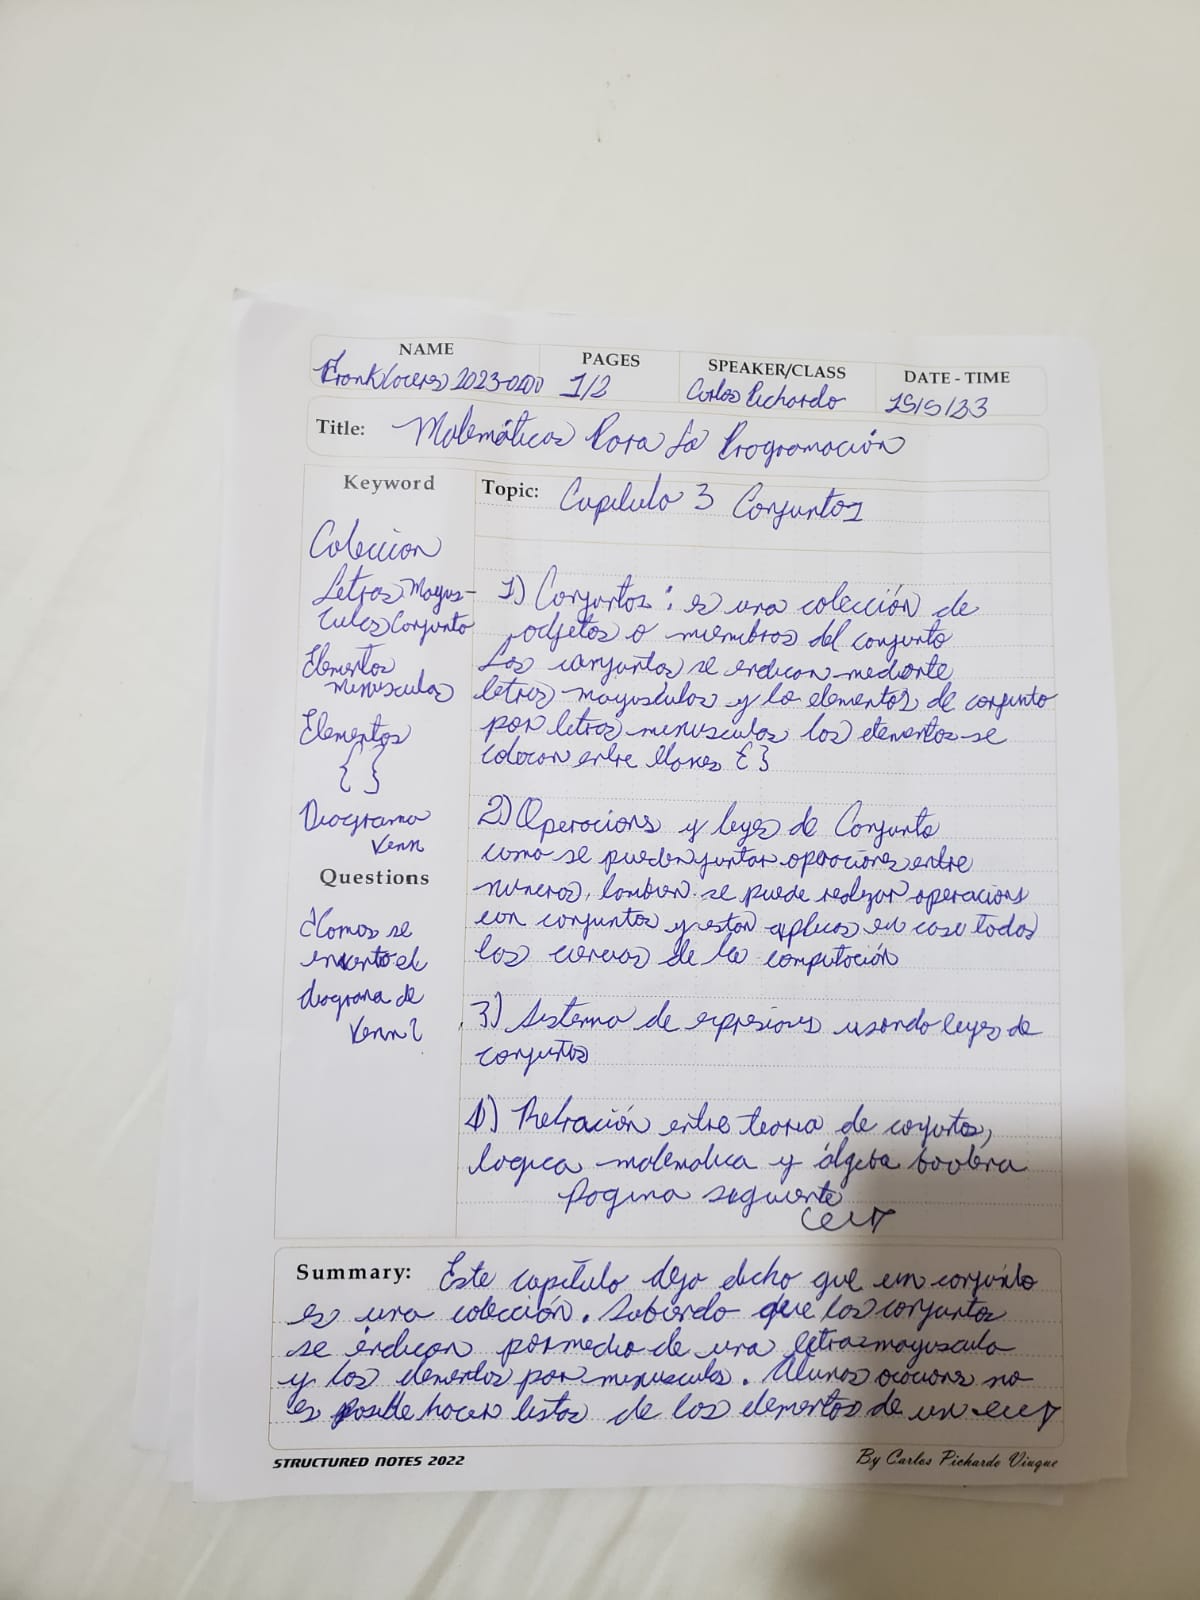 NAME
PAGES
SPEAKER/CLASS
DATE - TIME
Frank 2023-0200
1/2
Carlos Pichardo
15/5/23
Title: Matemáticas Para La Programación
Keyword
Topic: Capitulo 3 Conjuntos
Coleccion
Letras Mayus-
culas Conjunto
Elementos
minusculas
Elementos
{ }
Diagrama
Venn
Questions
se
el
diagrama de
Venn?
1) Conjuntos: es una colección de
odjetos o miembros del conjunto
Los conjuntos se endican mediante
letras mayusculas y lo elementos de conjunto
por letras minusculas los elementos se
colocan entre llaves { }
2) Operacions y leyes de Conjunto
como se pueden juntar operaciones entre
numeros, tambien se puede realizar operacions
con conjuntos y estan en casi todas
las ciencias de la computación
3) Sistema de expresiones usando leyes de
conjuntos
4) Relración entre teoria de conjuntos,
logica matematica y álgeba boolena
Pagina siguiente
Summary: Este capítulo dejo dicho que un conjunto
es una colección. Sabiendo que los conjuntos
se endican por medio de una letras mayuscula
y los elementos por minusculas. Alunas ocacions no
es posible hacer listas de los elementos de un
STRUCTURED NOTES 2022
By Carlos Pichardo Viuque